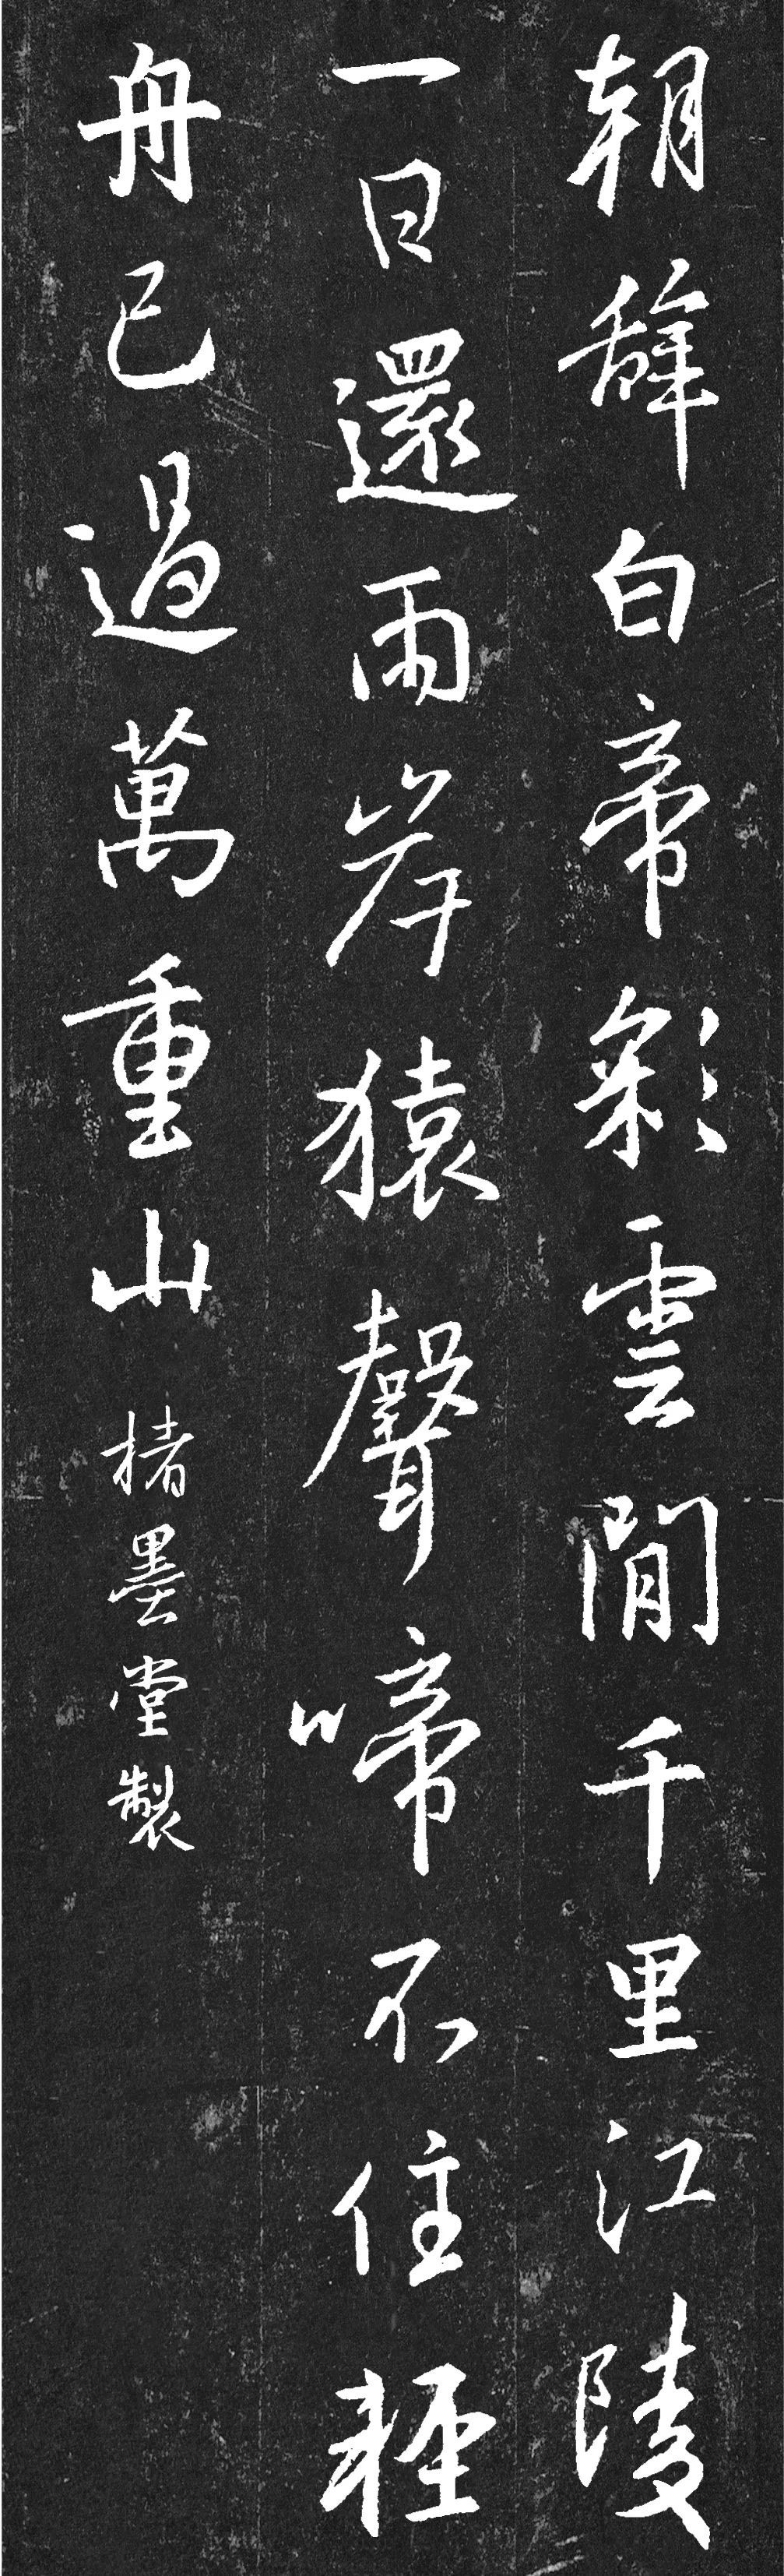 朝辭白帝彩雲間千里江陵
一日還兩岸猿聲啼不住輕
舟已過萬重山
楮墨堂製